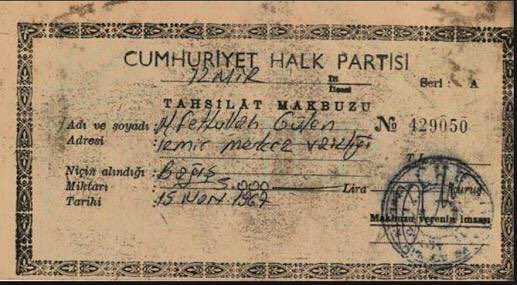 CUMHURİYET HALK PARTİSİ
İZMİR İli
İlçesi
Seri : A
TAHSİLÂT MAKBUZU
Adı ve soyadı : M. Fettullah Gülen
№ 429050
Adresi : İzmir merkez vaizliği
Niçin alındığı : Bağış
Miktarı : 5.000 Lira Kuruş
Tarihi : 15 1967
Makbuzu verenin imzası